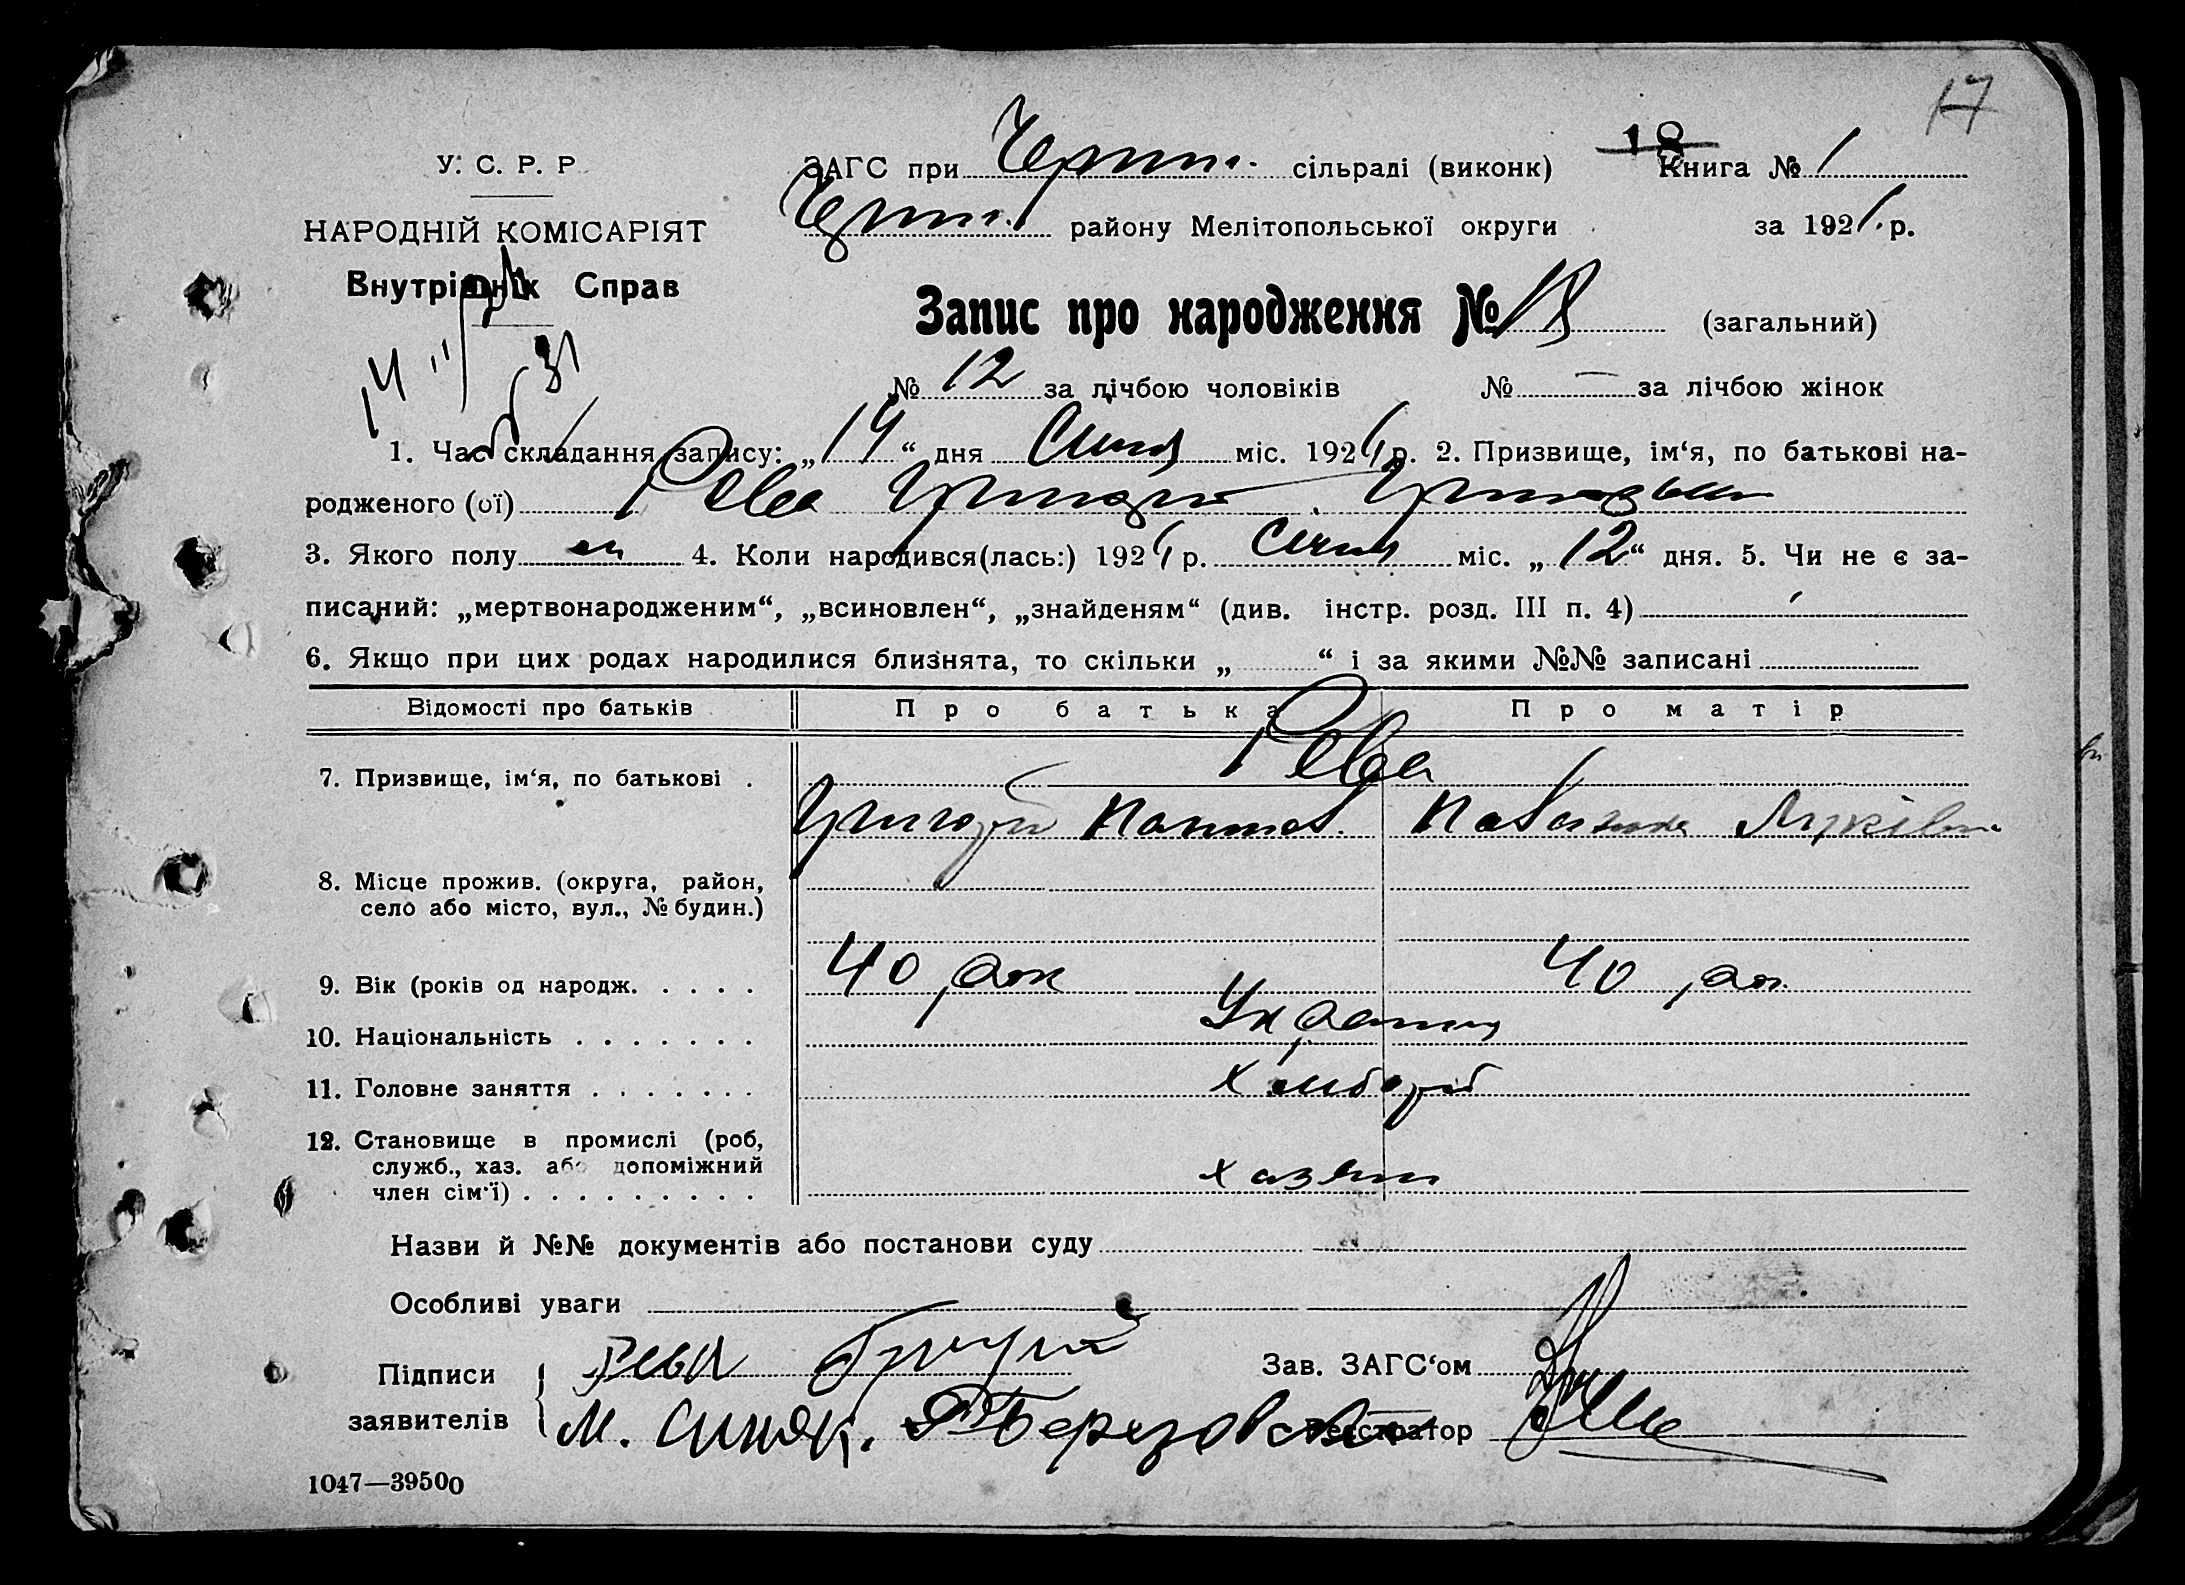 17
У. С. Р. Р
НАРОДНІЙ КОМІСАРІЯТ
Внутрішніх Справ
ЗАГС при сільраді (виконк)
18
Книга № 1
району Мелітопольської округи за 192 р.
Запис про народження № 18 (загальний)
№ 12 за лічбою чоловіків № — за лічбою жінок
1. Час складання запису: „14“ дня Січня міс. 192 р. 2. Призвище, ім‘я, по батькові на-
родженого (ої) Рева Григорій
3. Якого полу 4. Коли народився(лась:) 192 р. Січня міс. „12“ дня. 5. Чи не є за-
писаний: „мертвонародженим“, „всиновлен“, „знайденям“ (див. інстр. розд. III п. 4)
6. Якщо при цих родах народилися близнята, то скільки „ “ і за якими №№ записані
Відомості про батьків Про батька Про матір
7. Призвище, ім‘я, по батькові . Рева
Григорій
8. Місце прожив. (округа, район,
село або місто, вул., № будин.)
9. Вік (років од народж. . . . . 40 рок 40 рок
10. Національність . . . . . . .
11. Головне заняття . . . . . . . хлібороб
12. Становище в промислі (роб,
служб., хаз. або допоміжний
член сім‘ї) . . . . . . . . . хазяїн
Назви й №№ документів або постанови суду
Особливі уваги
Підписи Рева Зав. ЗАГС‘ом
заявителів М. Синяк. Реєстратор
1047—39500